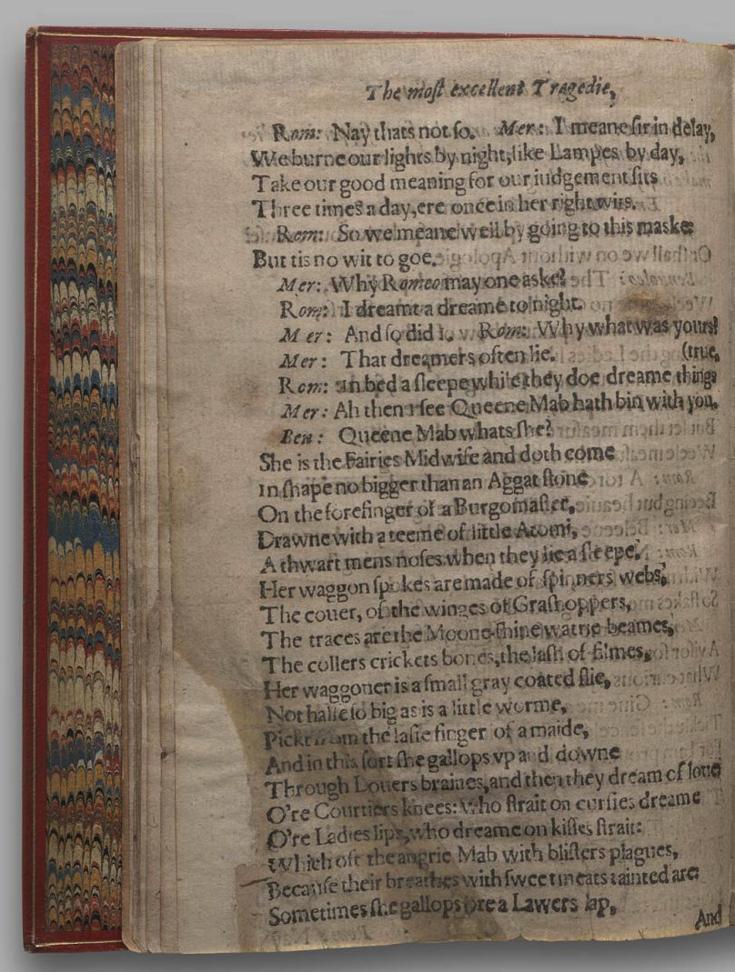 The most excellent Tragedie,
Rom: Nay thats not so. Mer: I meane sir in delay,
We burne our lights by night, like Lampes by day,
Take our good meaning for our iudgement sits
Three times a day, ere once in her right wits.
Rom: So we meane well by going to this maske:
But tis no wit to goe.
Mer: Why Romeo may one aske?
Rom: I dreamt a dreame to night.
Mer: And so did I. Rom: Why what was yours?
Mer: That dreamers often lie. (true,
Rom: In bed a sleepe while they doe dreame things
Mer: Ah then I see Queene Mab hath bin with you.
Ben: Queene Mab whats she?
She is the Fairies Midwife and doth come
In shape no bigger than an Aggat stone
On the forefinger of a Burgomaster,
Drawne with a teeme of little Atomi,
A thwart mens noses when they lie a sleepe.
Her waggon spokes are made of spinners webs,
The couer, of the winges of Grashoppers,
The traces are the Moone-shine watrie beames,
The collers crickets bones, the lash of filmes,
Her waggoner is a small gray coated flie,
Not halfe so big as is a little worme,
Pickt from the lasie finger of a maide,
And in this sort she gallops vp and downe
Through Louers braines, and then they dream of loue
O're Courtiers knees: who strait on cursies dreame
O're Ladies lips, who dreame on kisses strait:
Which oft the angrie Mab with blisters plagues,
Because their breathes with sweetmeats tainted are:
Sometimes she gallops ore a Lawers lap,
And